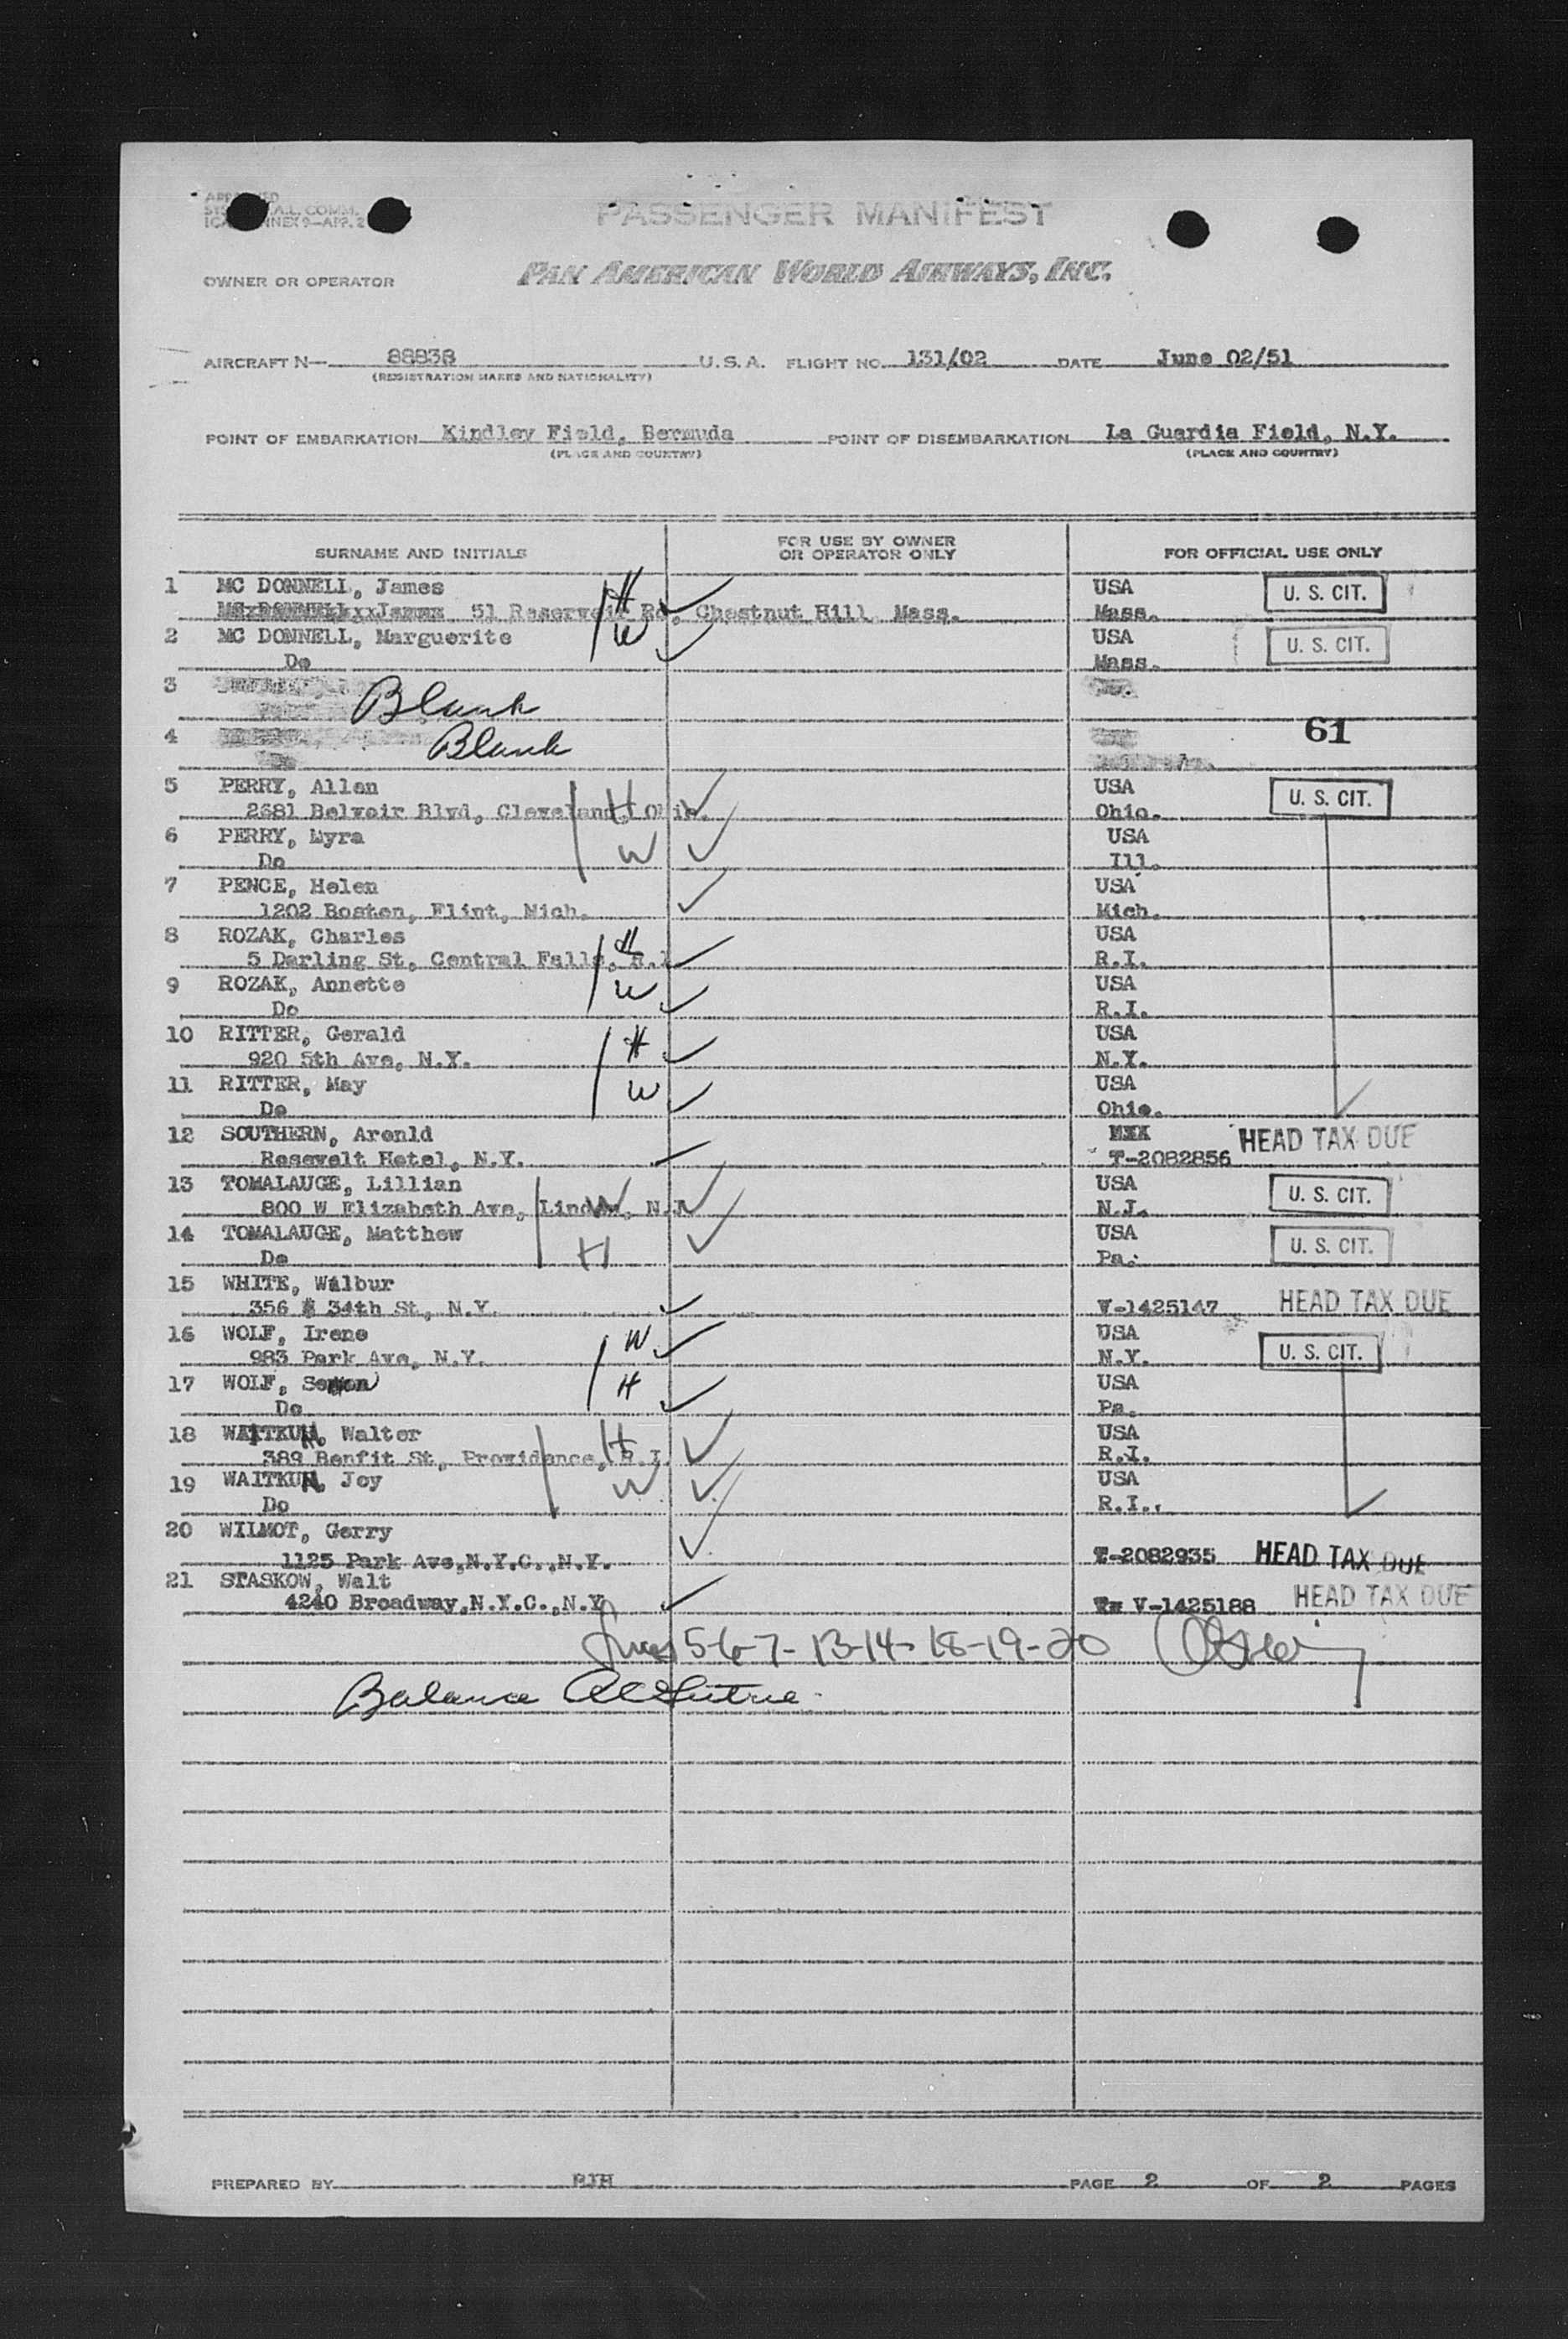 PASSENGER MANIFEST
OWNER OR OPERATOR PAN AMERICAN WORLD AIRWAYS, INC.
AIRCRAFT N— 88838 U.S.A. FLIGHT NO. 131/02 DATE June 02/51
(REGISTRATION MARKS AND NATIONALITY)
POINT OF EMBARKATION Kindley Field, Bermuda POINT OF DISEMBARKATION La Guardia Field, N.Y.
(PLACE AND COUNTRY) (PLACE AND COUNTRY)
SURNAME AND INITIALS FOR USE BY OWNER OR OPERATOR ONLY FOR OFFICIAL USE ONLY
1 MC DONNELL, James H USA U. S. CIT.
51 Reservoir Rd, Chestnut Hill Mass. Mass.
2 MC DONNELL, Marguerite W USA U. S. CIT.
Do Mass.
3 Blank
61
4 Blank
5 PERRY, Allen USA U. S. CIT.
2681 Belvoir Blvd, Cleveland, Ohio. H Ohio.
6 PERRY, Myra W USA
Do Ill.
7 PENCE, Helen USA
1202 Boston, Flint, Mich. Mich.
8 ROZAK, Charles H USA
5 Darling St, Central Falls, R.I R.I.
9 ROZAK, Annette W USA
Do R.I.
10 RITTER, Gerald H USA
920 5th Ave, N.Y. N.Y.
11 RITTER, May W USA
Do Ohio.
12 SOUTHERN, Aronld HEAD TAX DUE
Rosevelt Hotel, N.Y. T-2082856
13 TOMALAUGE, Lillian W USA U. S. CIT.
800 W Elizabeth Ave, Linden, N.J N.J.
14 TOMALAUGE, Matthew H USA U. S. CIT.
Do Pa.
15 WHITE, Wilbur
356 34th St, N.Y. V-1425147 HEAD TAX DUE
16 WOLF, Irene W USA U. S. CIT.
983 Park Ave, N.Y. N.Y.
17 WOLF, H USA
Do Pa.
18 WAITKUN, Walter H USA
389 Benfit St, Providence, R.I. R.I.
19 WAITKUN, Joy W USA
Do R.I.
20 WILMOT, Gerry
1125 Park Ave,N.Y.C.,N.Y. T-2082935 HEAD TAX DUE
21 STASKOW, Walt
4240 Broadway,N.Y.C.,N.Y V-1425188 HEAD TAX DUE
5-6-7-13-14-18-19-20
Balance
PREPARED BY RJH PAGE 2 OF 2 PAGES